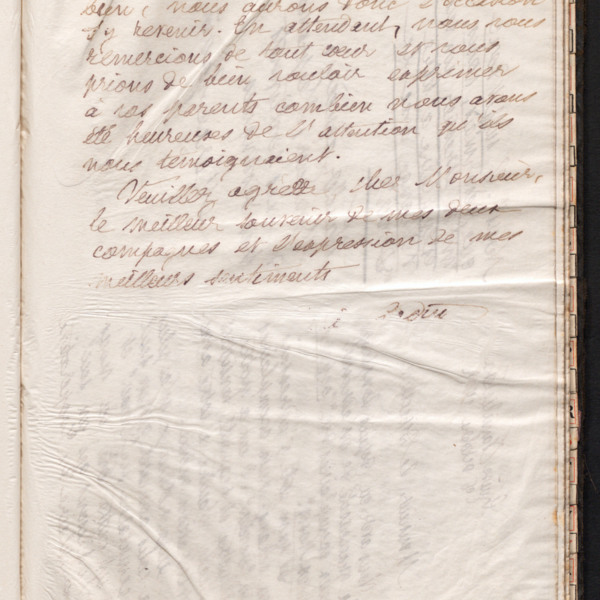 bien, nous aurons donc l'occasion
d'y revenir. En attendant, nous vous
remercions de tout cœur et vous
prions de bien vouloir exprimer
à vos parents combien nous avons
été heureuses de l'attention qu'ils
nous témoignaient.
Veuillez agréer cher Monsieur,
le meilleur souvenir de mes deux
compagnes et l'expression de mes
meilleurs sentiments